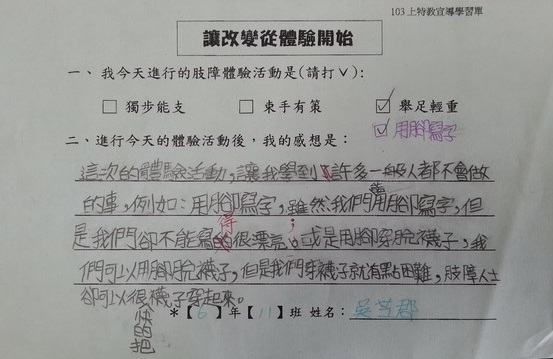 103上特教宣導學習單
讓改變從體驗開始
一、我今天進行的肢障體驗活動是(請打∨):
□ 獨步能支 □ 束手有策 ☑ 舉足輕重
☑ 用腳寫字
二、進行今天的體驗活動後，我的感想是：
這次的體驗活動，讓我學到許多一般人都不會做
的事，例如：用腳寫字，雖然我們用腳寫字，但
是我們卻不能寫得很漂亮；或是用腳穿脫襪子，我
們可以用腳脫襪子，但是我們穿襪子就有點困難，肢障人士
卻可以很快的把襪子穿起來。
*【6】年【11】班 姓名：吳芝郡